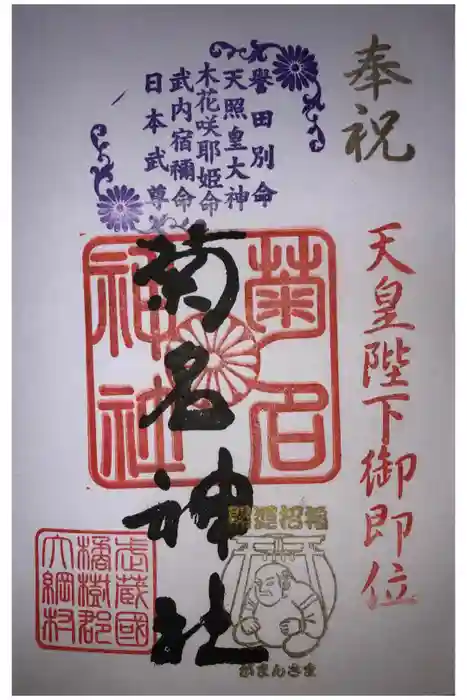 奉祝
天皇陛下御即位
譽田別命
天照皇大神
木花咲耶姫命
武内宿禰命
日本武尊
菊名神社
菊名
神社
開運招福
がまんさま
武蔵國
橘樹郡
大綱村